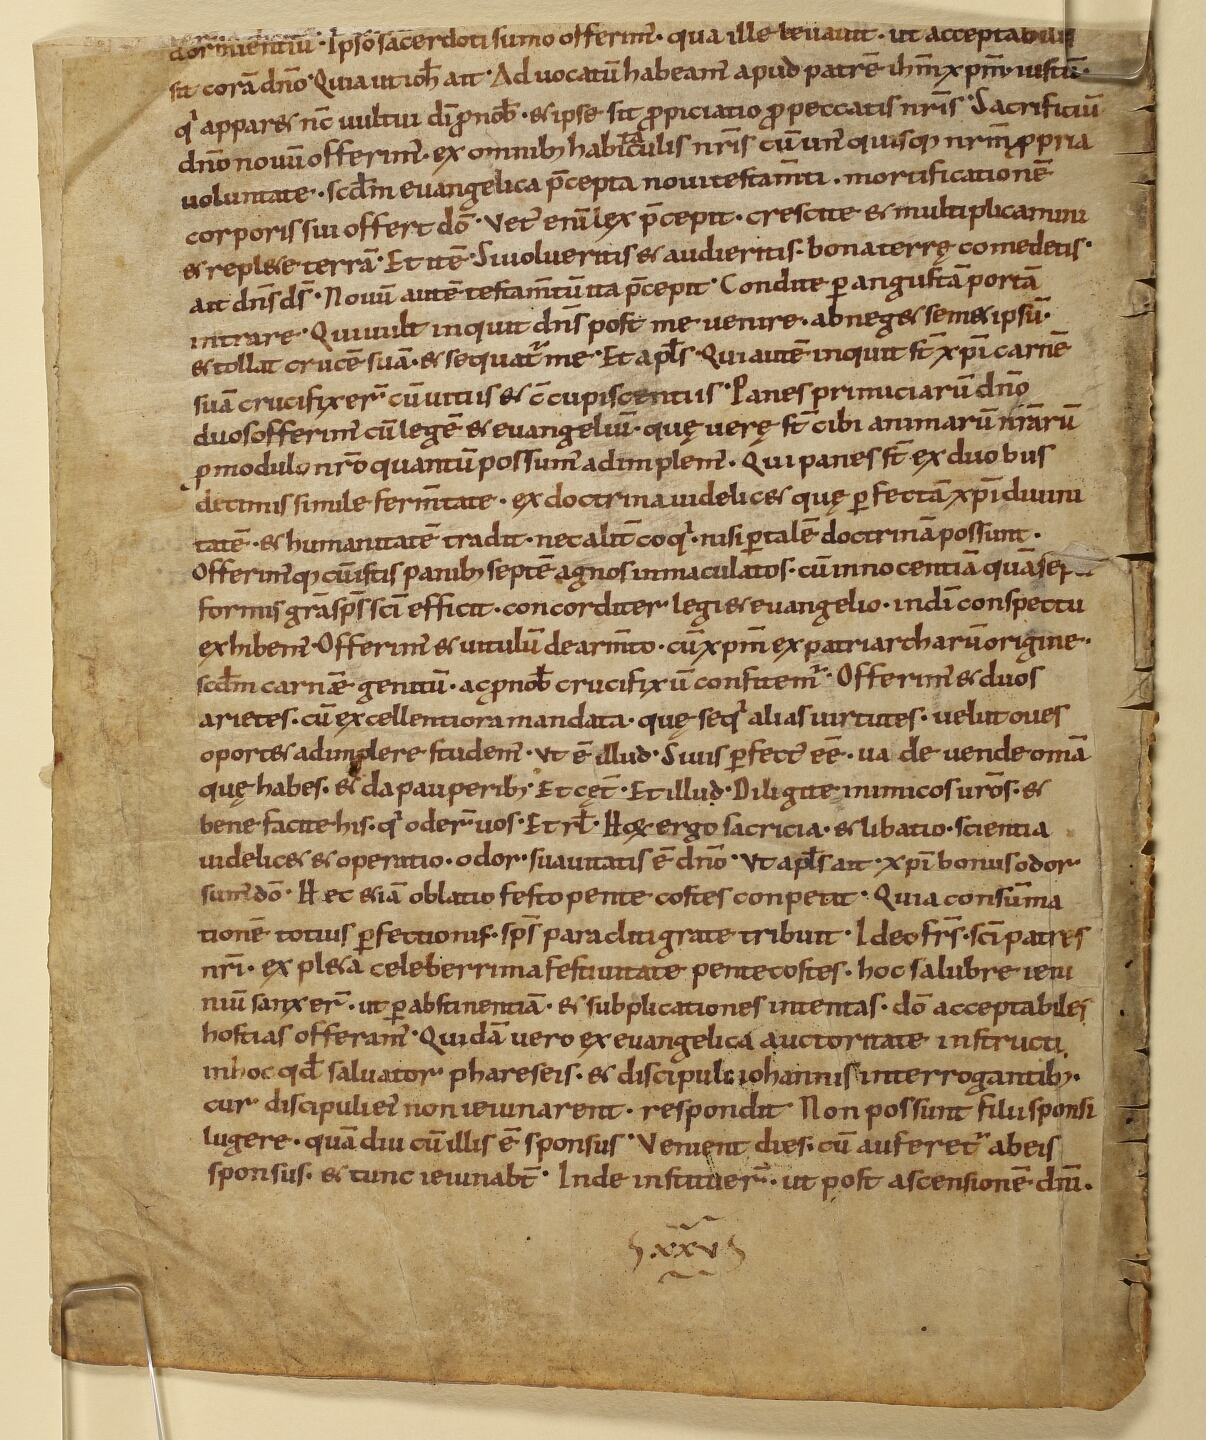 dormientiū · Ipso sacerdoti sumo offerim̄ · qua ille leuauit · ut acceptabilis
sit corā dn̄o · Quia ut ioh̄ ait · Ad uocatū habeam̄ apud patrē ih̄m x̄pm̄ iustū ·
qͥ appar& nc̄ uultui dī ꝓ nob̄ · & ipse sit ꝓpiciatio ꝓ peccatis nr̄is · Sacrificiū
dn̄o nouū offerim̄ · ex omnibꝫ habitaculis nr̄is cū un̄ quisqꝫ nr̄m ꝓpria
uoluntate · scd̄m euangelica p̄cepta noui testam̄ti · mortificationē
corporis sui offert dō · Vet̄ enī lex p̄cepit · crescite & multiplicamini
& repl&e terrā · Et itē · Si uolueritis & audieritis · bona terrę comedetis ·
ait dn̄s ds̄ · Nouū autē testam̄tū ita p̄cepit · Condite ꝑ angustā portā
intrare · Qui uult inquit dn̄s post me uenire · abneg& sem&ipsū ·
& tollat crucē suā · & sequat᷑ me · Et apl̄s · Qui autē inquit st̄ x̄pi carnē
suā crucifixer̄ cū uitiis & c̄cupiscentiis · Panes primiciarū dn̄o
duos offerim̄ cū legē & euangeliū · quę uerę st̄ cibi animarū nr̄arū
ꝓ modulo nr̄o quantū possum̄ adimplem̄ · Qui panes st̄ ex duobus
decimis simile ferm̄tate · ex doctrina uidelic& quę ꝑfectā x̄pi diuini
tatē · & humanitatē tradit · nec alit̄ coqͥ · nisi ꝑ talē doctrinā possunt ·
Offerim̄qꝫ cū istis panibꝫ septē agnos inmaculatos · cū innocentiā quā
formis grā sps̄ sc̄i efficit · concorditer legi & euangelio · in dī conspectu
exhibem̄ · Offerim̄ & uitulū de arm̄to · cū x̄pm̄ ex patriarcharū origine ·
scd̄m carnē genitū · ac ꝓ nob̄ crucifixū confitem᷑ · Offerim̄ & duos
arietes · cū excellentiora mandata · quę seqͥ alias uirtutes · uelut oues
oport& adimplere studem̄ · Vt ē illud · Si uis ꝑfect̄ eē · ua de uende om̄a
quę habes · & da pauperibꝫ · Et cęt̄ · Et illud · Diligite inimicos ur̄os · &
bene facite his · qͥ oder̄ uos · Et rl̄ · Hęc ergo sacricia · & libatio · scientia
uidelic& & operatio · odor · suauitatis ē dn̄o · Vt apl̄s ait · x̄pi bonus odor
sum̄ dō · Hec &iā oblatio festo pentecostes conpetit · Quia consūma
tionē totius ꝑfectionis · sps̄ paracliti grate tribuit · Ideo fr̄s · sc̄i patres
nr̄i · expl&a celeberrima festiuitate pentecostes · hoc salubre ieiu
niū sanxer̄ · ut ꝑ abstinentiā · & subplicationes intentas · dō acceptabiles
hostias offeram̄ · Quidā uero ex euangelica auctoritate instructi
in hoc qd̄ saluator phareseis · & discipulis iohannis interrogantibꝫ ·
cur discipuli ei᷒ non ieiunarent · respondit · Non possunt filii sponsi
lugere · quā diu cū illis ē sponsus · Venient dies · cū auferet᷑ ab eis
sponsus · & tunc ieiunabt̄ · Inde instituer̄ · ut post ascensionē dn̄i ·
· xxv ·